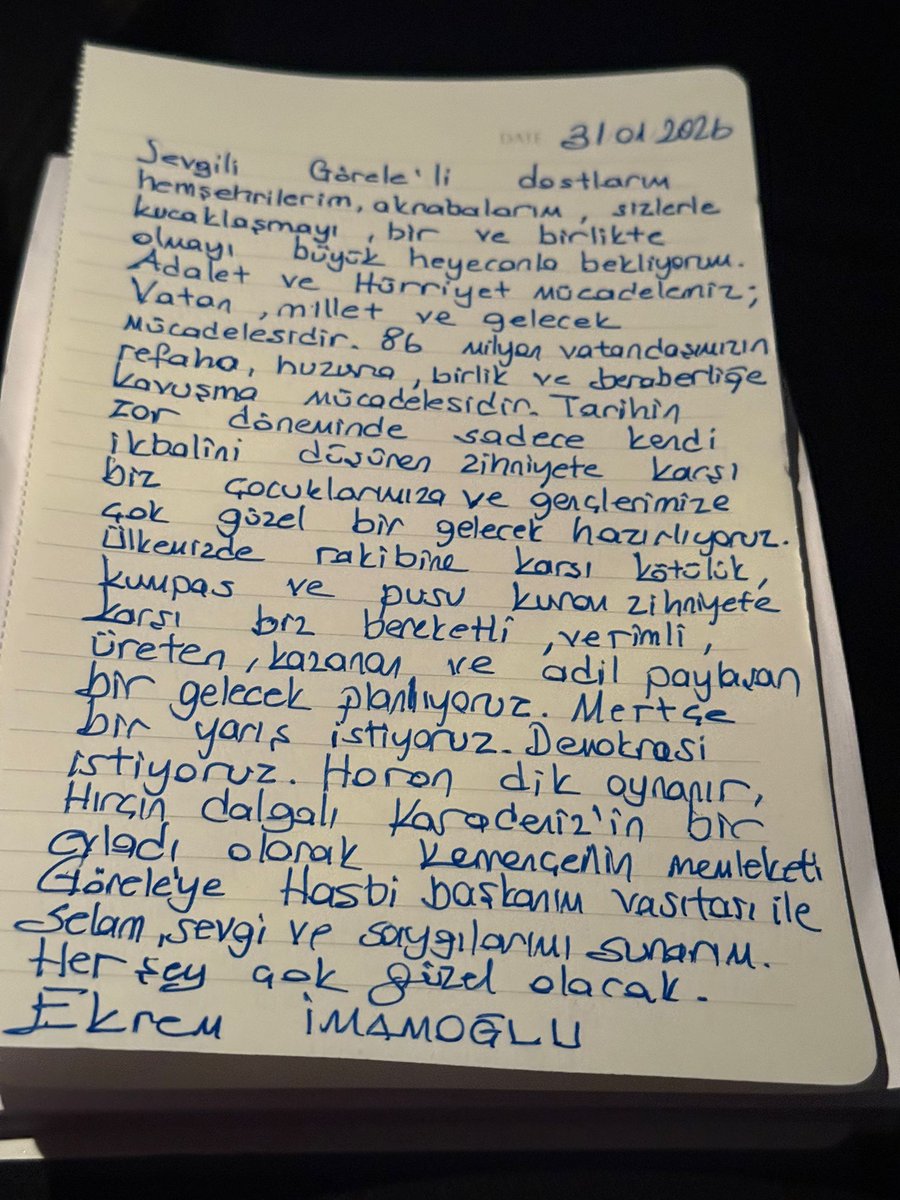 DATE 31 01 2026
Sevgili Görele'li dostlarım
hemşehrilerim, aknabalarım, sizlerle
kucaklaşmayı, bir ve birlikte
olmayı büyük heyecanla bekliyorum.
Adalet ve Hürriyet mücadelemiz;
Vatan, millet ve gelecek
mücadelesidir. 86 milyon vatandaşımızın
refaha, huzura, birlik ve beraberliğe
kavuşma mücadelesidir. Tarihin
zor döneminde sadece kendi
ikbalini düşünen zihniyete karşı
biz çocuklarımıza ve gençlerimize
çok güzel bir gelecek hazırlıyoruz.
Ülkemizde rakibine karsı kötülük,
kumpas ve pusu kuran zihniyete
karşı biz bereketli, verimli,
üreten, kazanan ve adil paylaşan
bir gelecek planlıyoruz. Mertçe
bir yarış istiyoruz. Demokrasi
istiyoruz. Horon dik oynanır,
Hırçın dalgalı Karadeniz'in bir
evladı olarak kemençenin memleketi
Görele'ye Hasbi başkanım vasıtası ile
Selam, sevgi ve saygılarımı sunarım.
Her şey çok güzel olacak.
Ekrem İMAMOĞLU